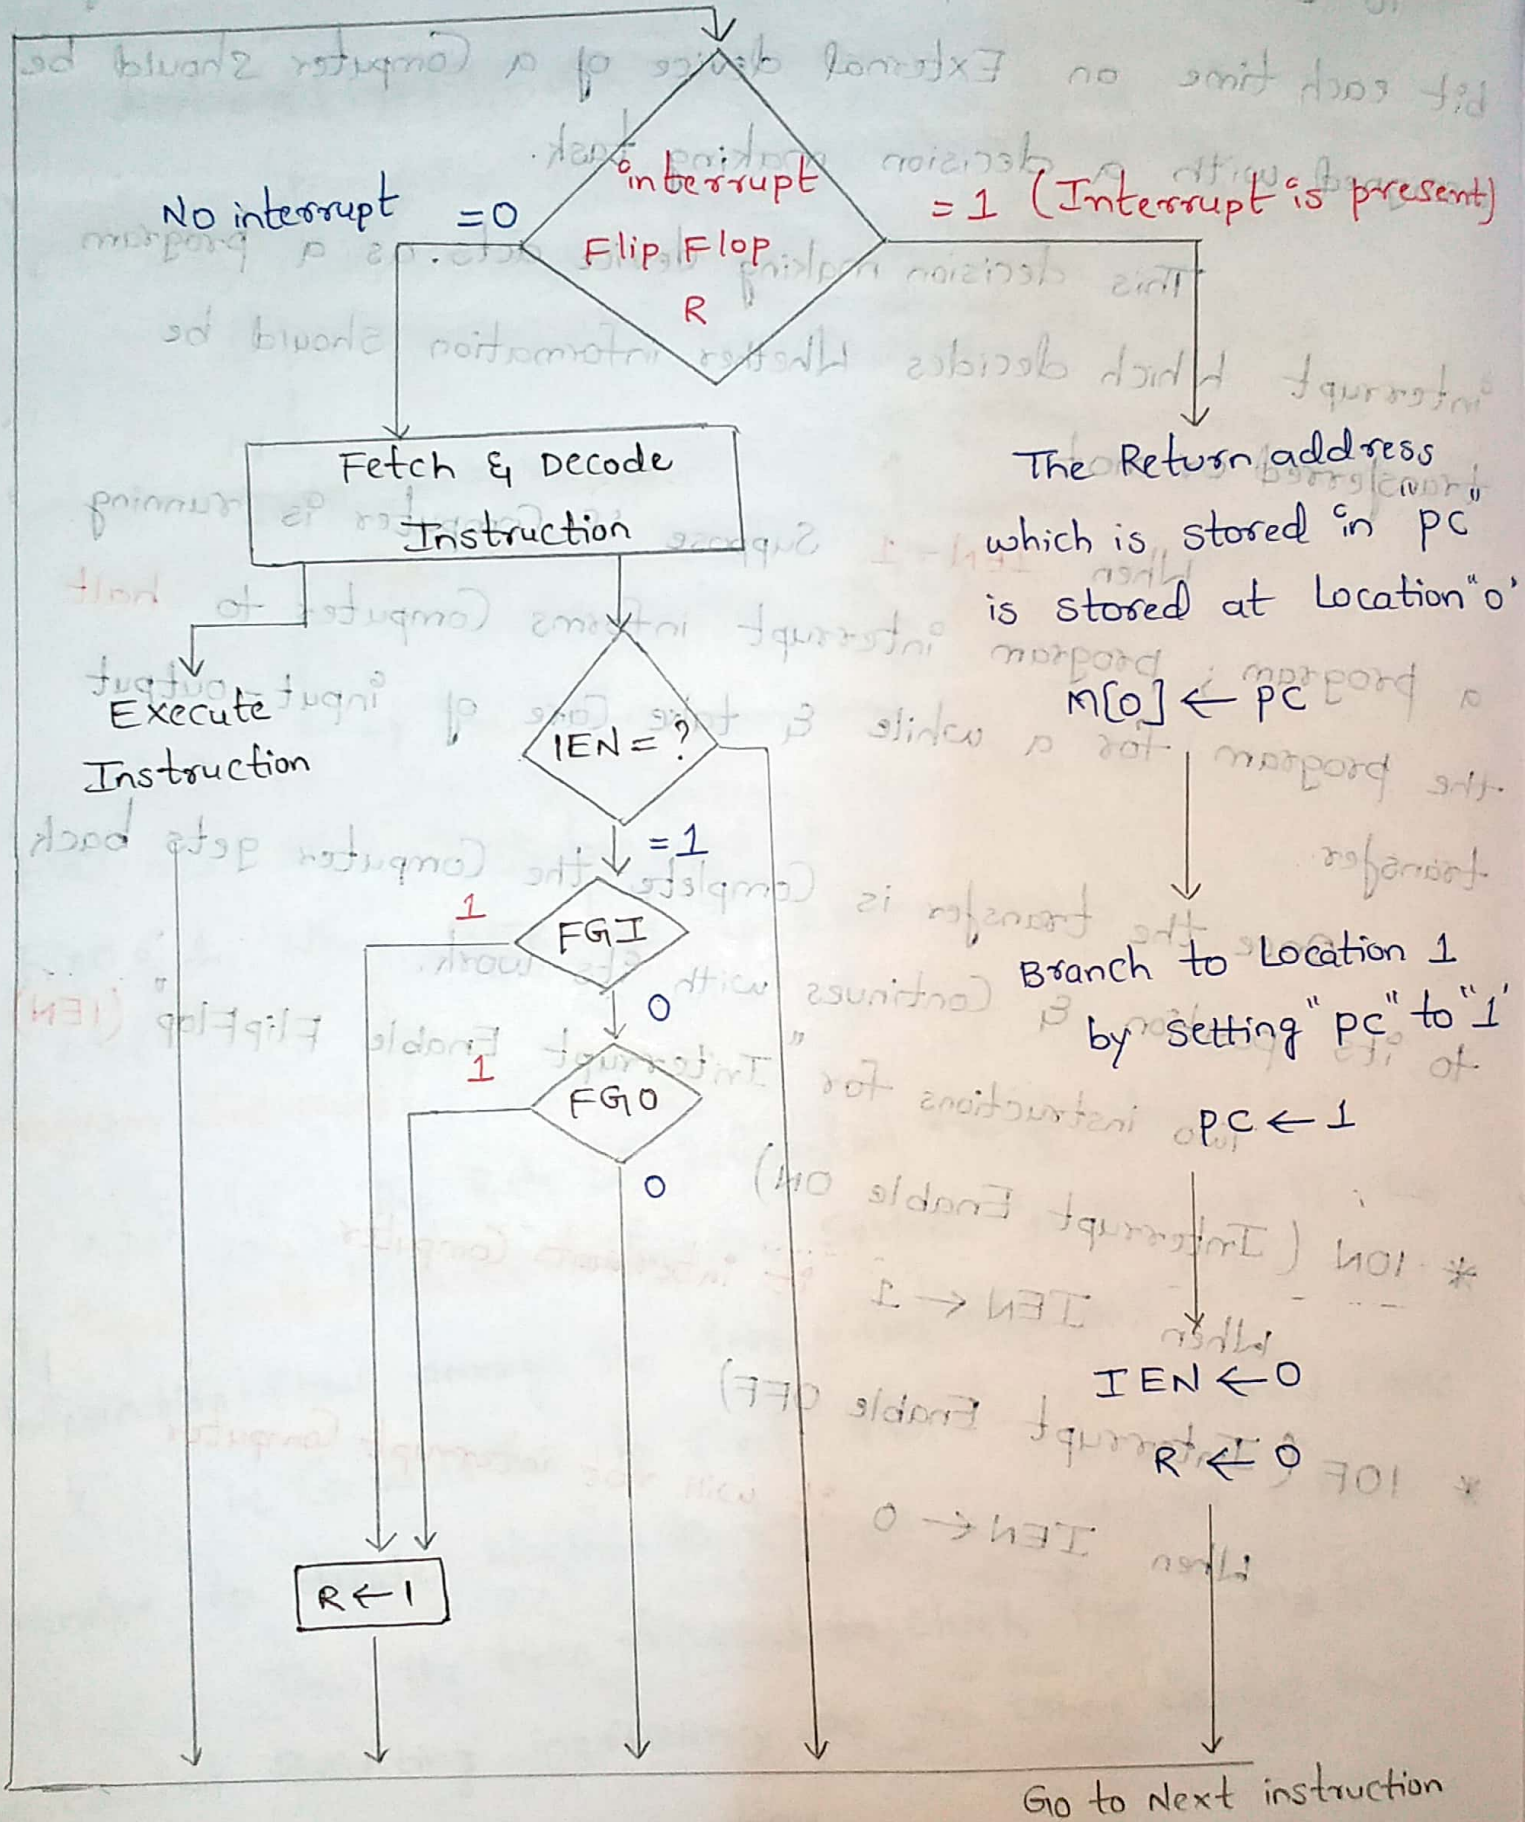 interrupt
Flip Flop
R
No interrupt =0
= 1 (Interrupt is present)
Fetch & Decode
Instruction
Execute
Instruction
IEN = ?
= 1
FGI
1
0
FGO
1
0
R ← 1
The Return address
which is stored in "PC"
is stored at Location "0'
M[0] ← PC
Branch to Location 1
by setting "PC" to "1'
PC ← 1
IEN ← 0
R ← 0
Go to Next instruction